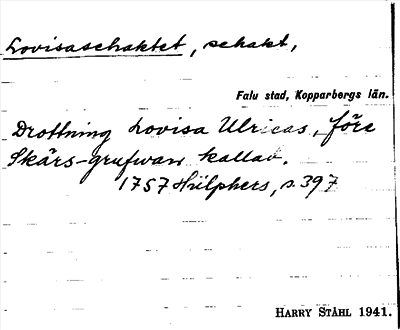 Lovisaschaktet, schakt,
Falu stad, Kopparbergs län.
Drottning Lovisa Ulricas, före
Skärs-grufwan kallad.
1757 Hülphers, s. 397
HARRY STÅHL 1941.